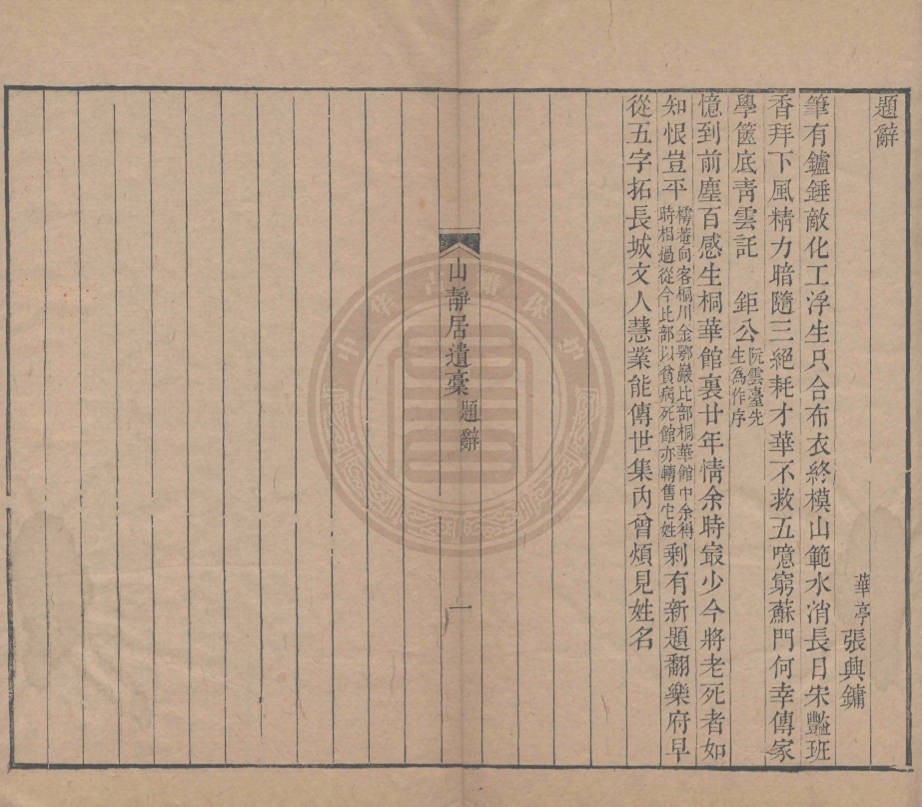 題辭
華亭張興鏞
筆有鑪錘敵化工浮生只合布衣終模山範水消長日宋豔班
香拜下風精力暗隨三絕耗才華不救五噫窮蘇門何幸傳家
學篋底靑雲託　鉅公阮雲臺先生爲作序
憶到前塵百感生桐華館裏廿年情余時㝡少今將老死者如
知恨豈平樗菴向客桐川金鄂巖比部桐華館中余得時相過從今比部以貧病死館亦轉售它姓剩有新題翻樂府早
從五字拓長城文人慧業能傳世集內曾煩見姓名
山靜居遺稾題辭
一